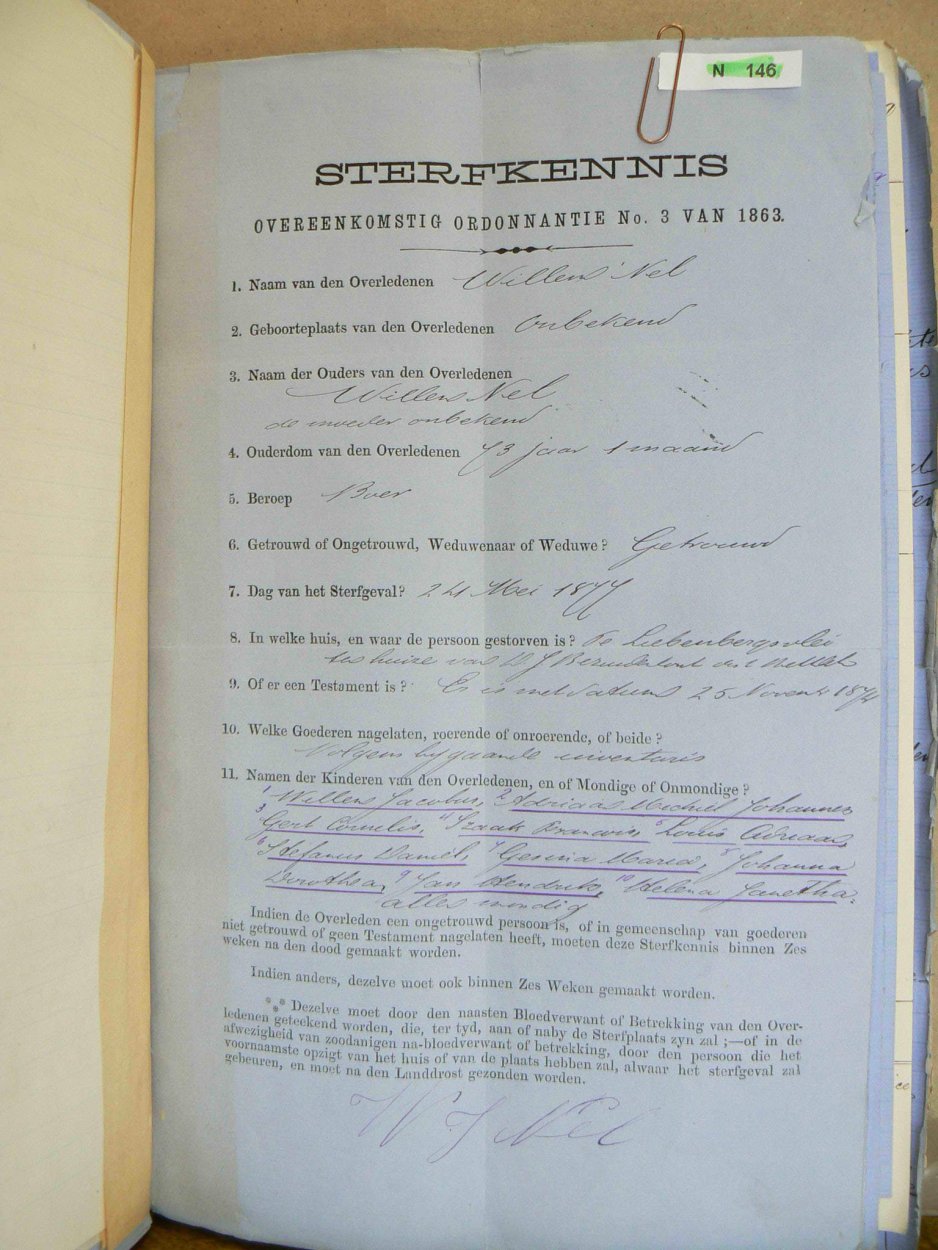 N 146
STERFKENNIS
OVEREENKOMSTIG ORDONNANTIE No. 3 VAN 1863.
1. Naam van den Overledenen Willem Nel
2. Geboorteplaats van den Overledenen Onbekend
3. Naam der Ouders van den Overledenen
Willem Nel
de moeder onbekend
4. Ouderdom van den Overledenen 73 jaar 1 maand
5. Beroep Boer
6. Getrouwd of Ongetrouwd, Weduwenaar of Weduwe? Getrouwd
7. Dag van het Sterfgeval? Mei 1877
8. In welke huis, en waar de persoon gestorven is? Te Liebenbergsvlei
ten huize van
9. Of er een Testament is? Er is met datum 25 November
10. Welke Goederen nagelaten, roerende of onroerende, of beide?
Volgens bygaande inventaris
11. Namen der Kinderen van den Overledenen, en of Mondige of Onmondige?
1 Willem Jacobus, 2 Adriaan Michiel Johannes
3 Gert Cornelis, 4 Izaak Francois, 5 Louis Adriaan,
6 Stefanus Daniël, 7 Gesina Maria, 8 Johanna
Dorothea, 9 Jan Hendrik, 10 Helena Janetha.
alles mondig
Indien de Overleden een ongetrouwd persoon is, of in gemeenschap van goederen
niet getrouwd of geen Testament nagelaten heeft, moeten deze Sterfkennis binnen Zes
weken na den dood gemaakt worden.
Indien anders, dezelve moet ook binnen Zes Weken gemaakt worden.
*** Dezelve moet door den naasten Bloedverwant of Betrekking van den Over-
ledenen geteekend worden, die, ter tyd, aan of naby de Sterfplaats zyn zal ;—of in de
afwezigheid van zoodanigen na-bloedverwant of betrekking, door den persoon die het
voornaamste opzigt van het huis of van de plaats hebben zal, alwaar het sterfgeval zal
gebeuren, en moet na den Landdrost gezonden worden.
W J Nel